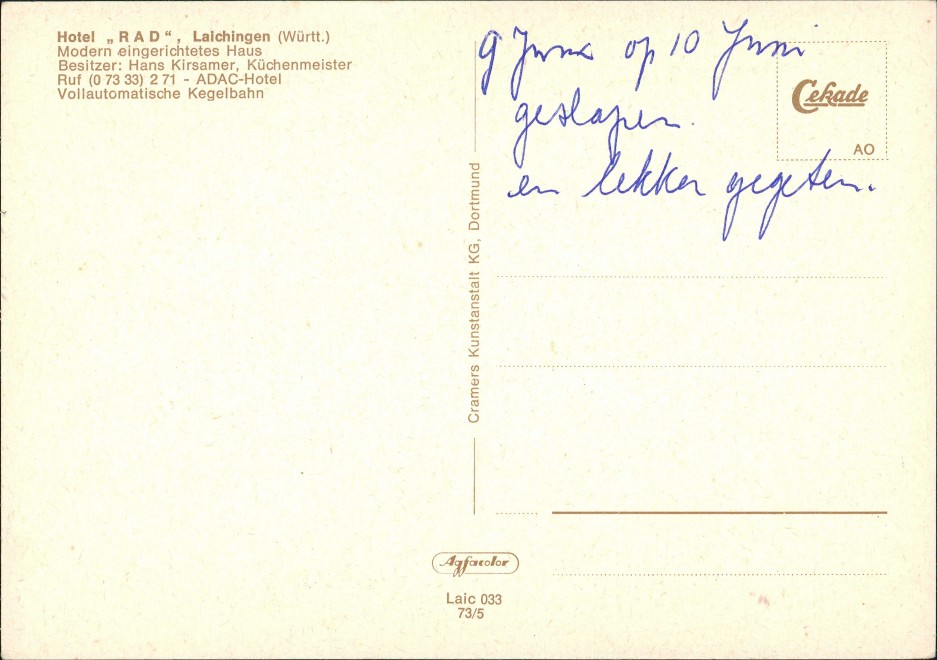 Hotel „RAD“, Laichingen (Württ.)
Modern eingerichtetes Haus
Besitzer: Hans Kirsamer, Küchenmeister
Ruf (0 73 33) 2 71 - ADAC-Hotel
Vollautomatische Kegelbahn
9 Juni op 10 Juni
geslapen.
en lekker gegeten.
Cekade
AO
Cramers Kunstanstalt KG, Dortmund
Agfacolor
Laic 033
73/5